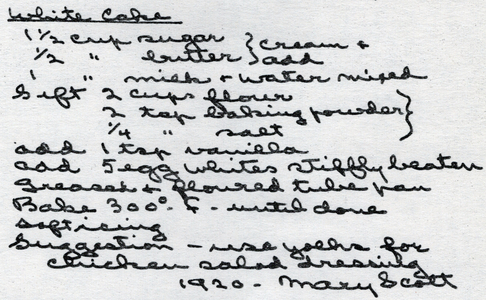 White Cake
1 1/2 cup sugar } cream +
1/2 " butter } add
1 " milk + water mixed
Sift 2 cups flour
2 tsp baking powder }
1/4 " salt
add 1 tsp vanilla
add 5 egg whites stiffly beaten
Greased + floured tube pan
Bake 300° F - until done
soft icing
Suggestion - use yolks for
chicken salad dressing
1920 - Mary Scott